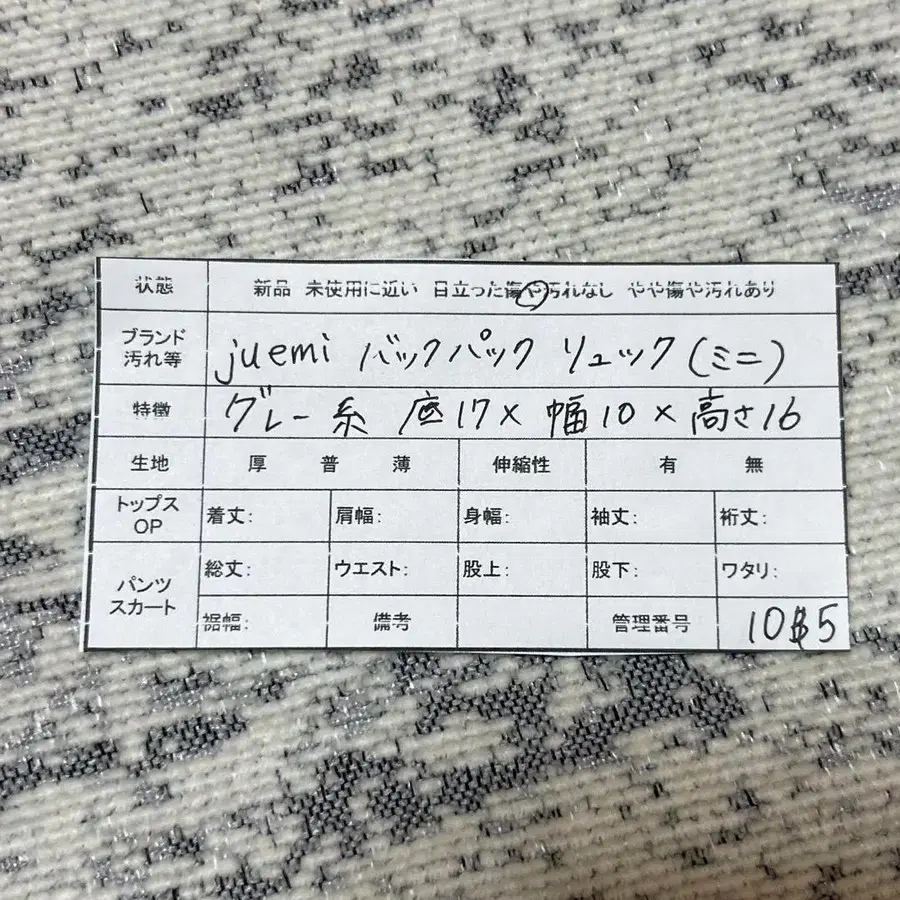 状態 新品 未使用に近い 目立った傷や汚れなし やや傷や汚れあり
ブランド 汚れ等 juemi バックパック リュック(ミニ)
特徴 グレー系 底17× 幅10×高さ16
生地 厚 普 薄 伸縮性 有 無
トップス OP 着丈: 肩幅: 身幅: 袖丈: 裄丈:
パンツ スカート 総丈: ウエスト: 股上: 股下: ワタリ:
裾幅: 備考 管理番号